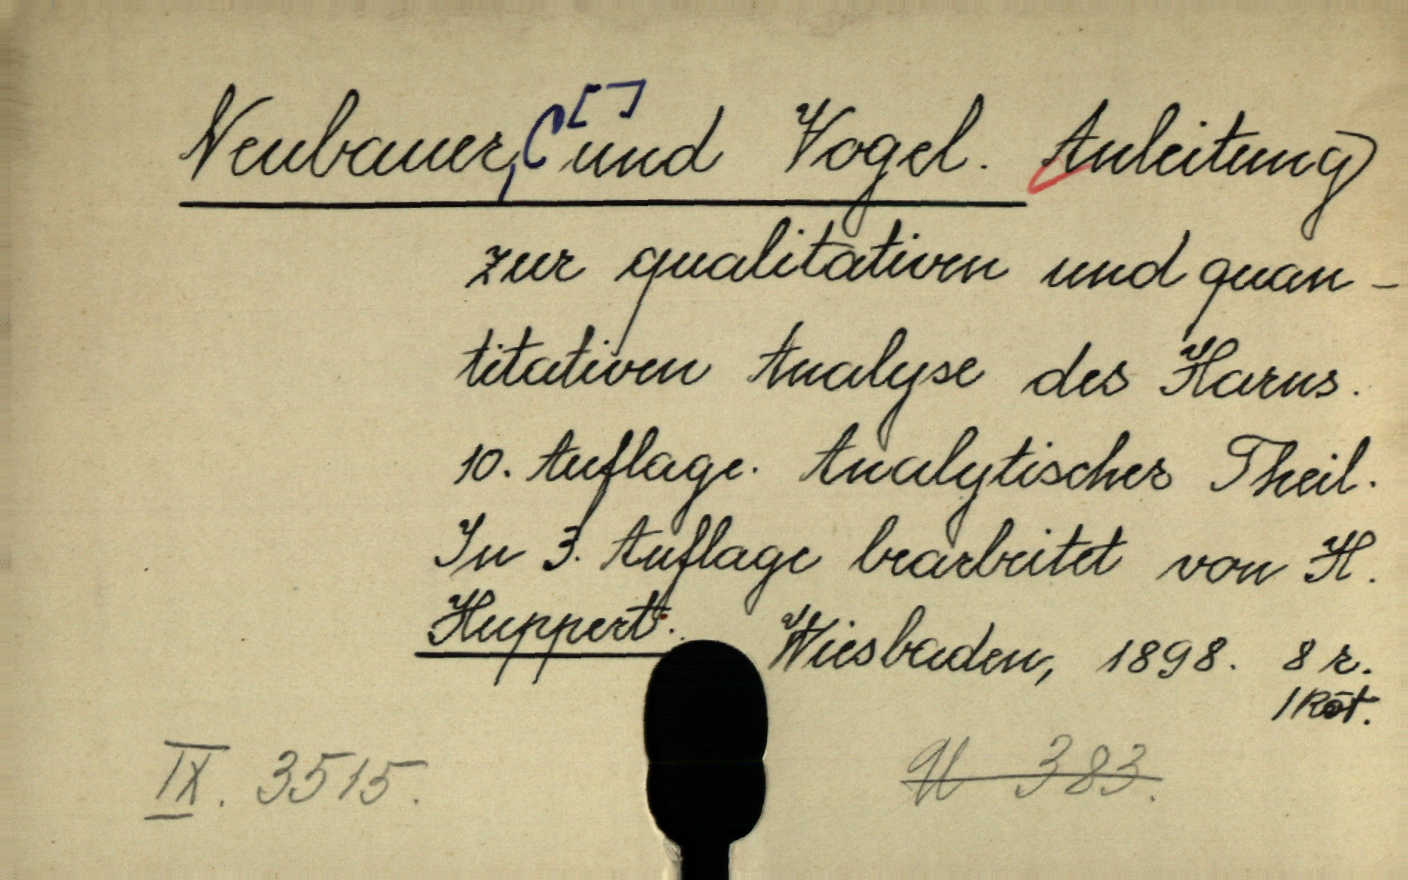 Neubauer, C [] und Vogel. Anleitung
zur qualitativen und quan-
titativen Analyse des Harns.
10. Auflage. Analytischer Theil.
In 3. Auflage bearbeitet von H.
Huppert. Wiesbaden, 1898. 8 r.
1 Köt.
IX. 3515. 383.